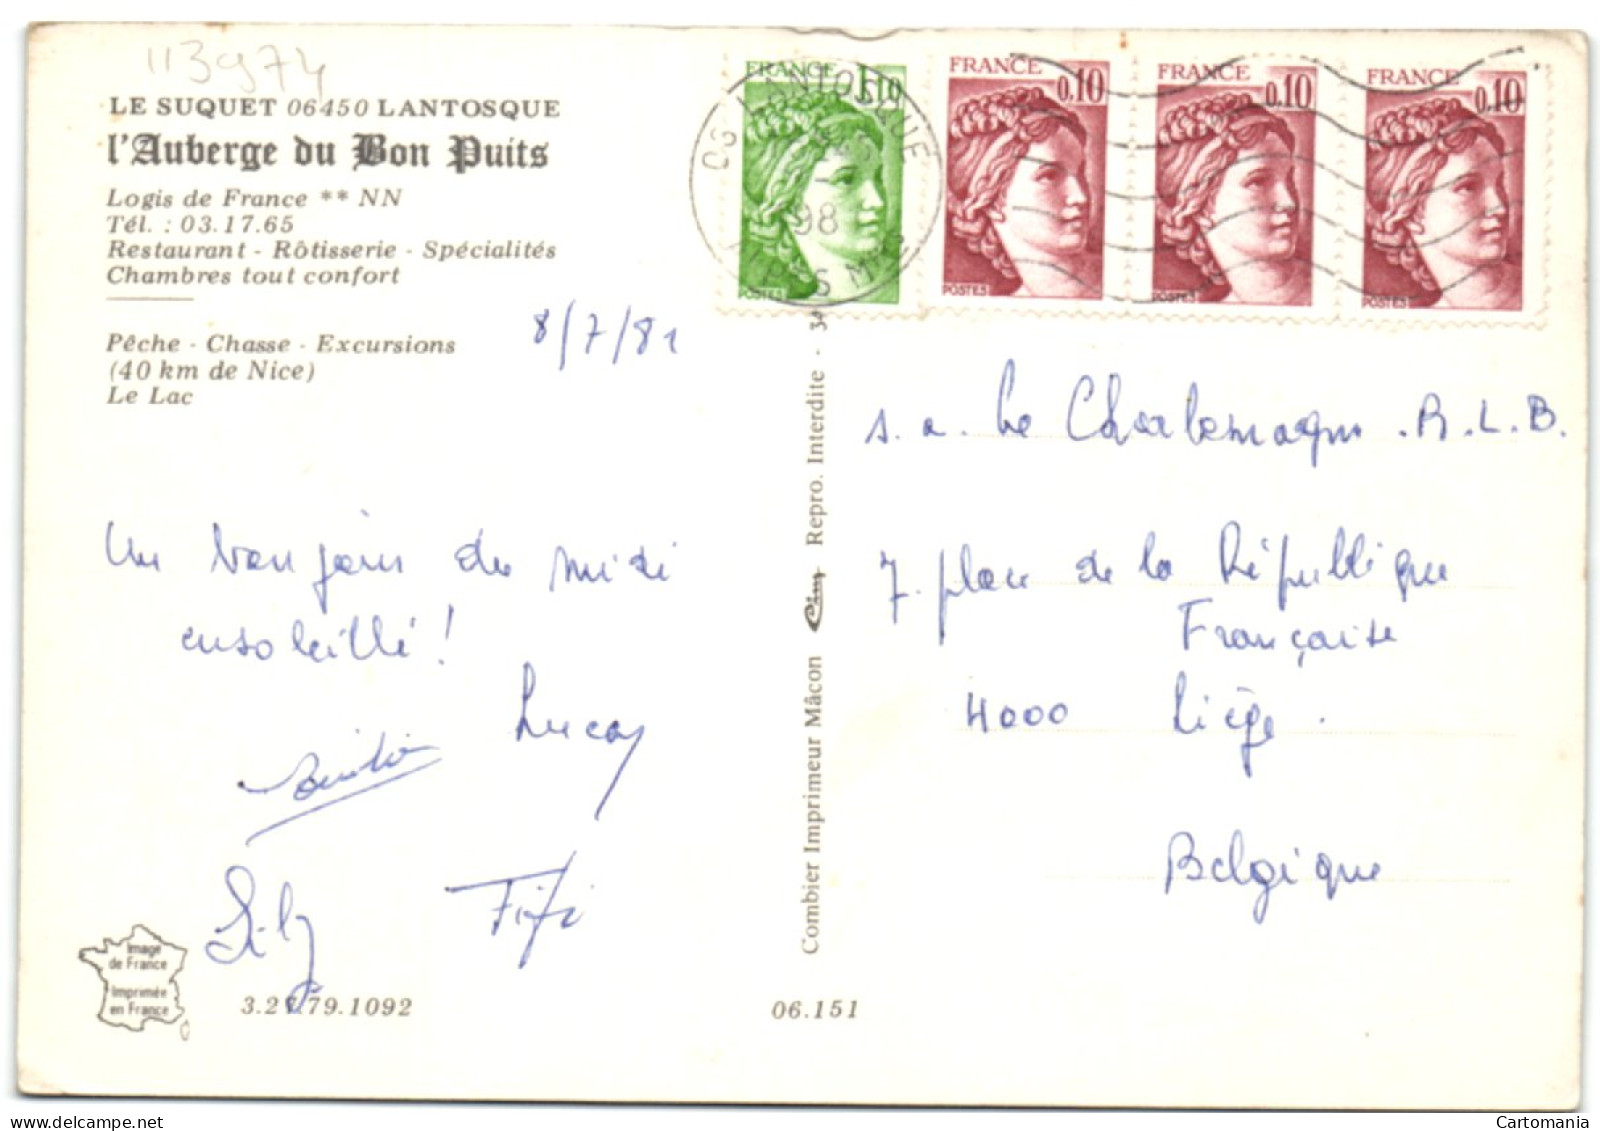 113974
LE SUQUET 06450 LANTOSQUE
l'Auberge du Bon Puits
Logis de France ** NN
Tél. : 03.17.65
Restaurant - Rôtisserie - Spécialités
Chambres tout confort
Pêche - Chasse - Excursions
(40 km de Nice)
Le Lac
8/7/81
Un bonjour du midi
ensoleillé !
Lucas
Fifi
Image
de France
Imprimée
en France
3.27.79.1092
06.151
Combier Imprimeur Mâcon Cim Repro. Interdite - 34
FRANCE
1.10
POSTES
FRANCE
0,10
POSTES
FRANCE
0,10
POSTES
FRANCE
0,10
POSTES
LANTOSQUE
s.a. Le Charlemagne . R.L.B.
7. place de la République
Française
4000 Liège .
Belgique
Cartomania